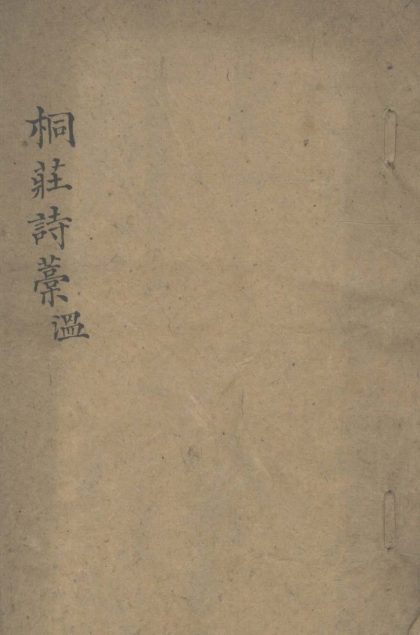 桐莊詩藁 溫